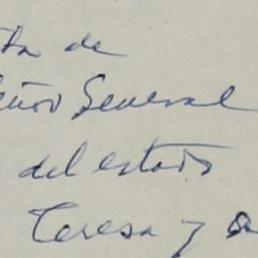 ta de
eñor General
del estado
Teresa y a